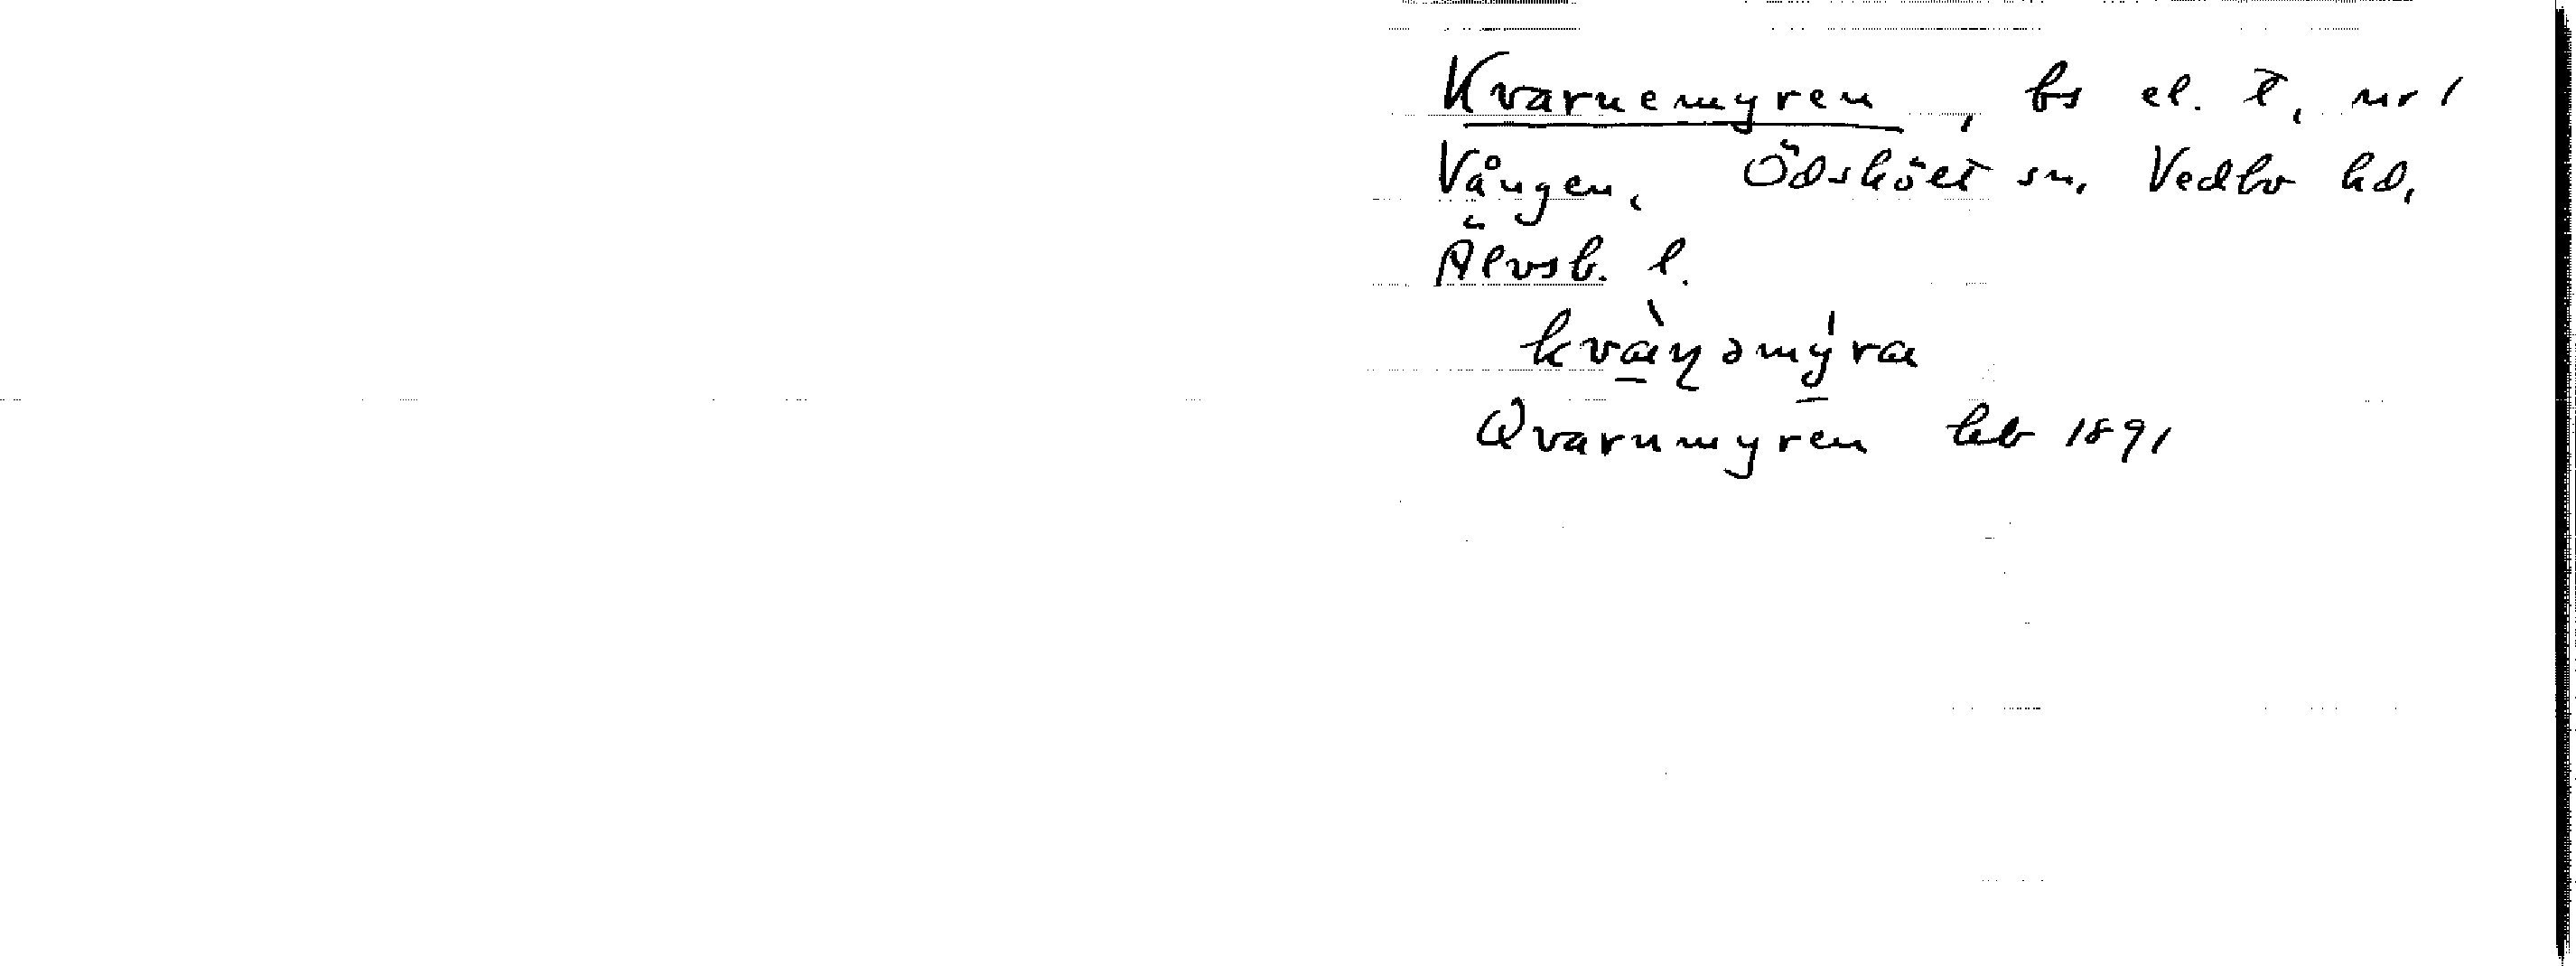 Kvarnemyren, bs el. t, nr 1
Vången, Ödskölt sn, Vedbo hd,
Älvsb. l.
kvàɳəmy̍ra
Qvarnmyren hb 1891